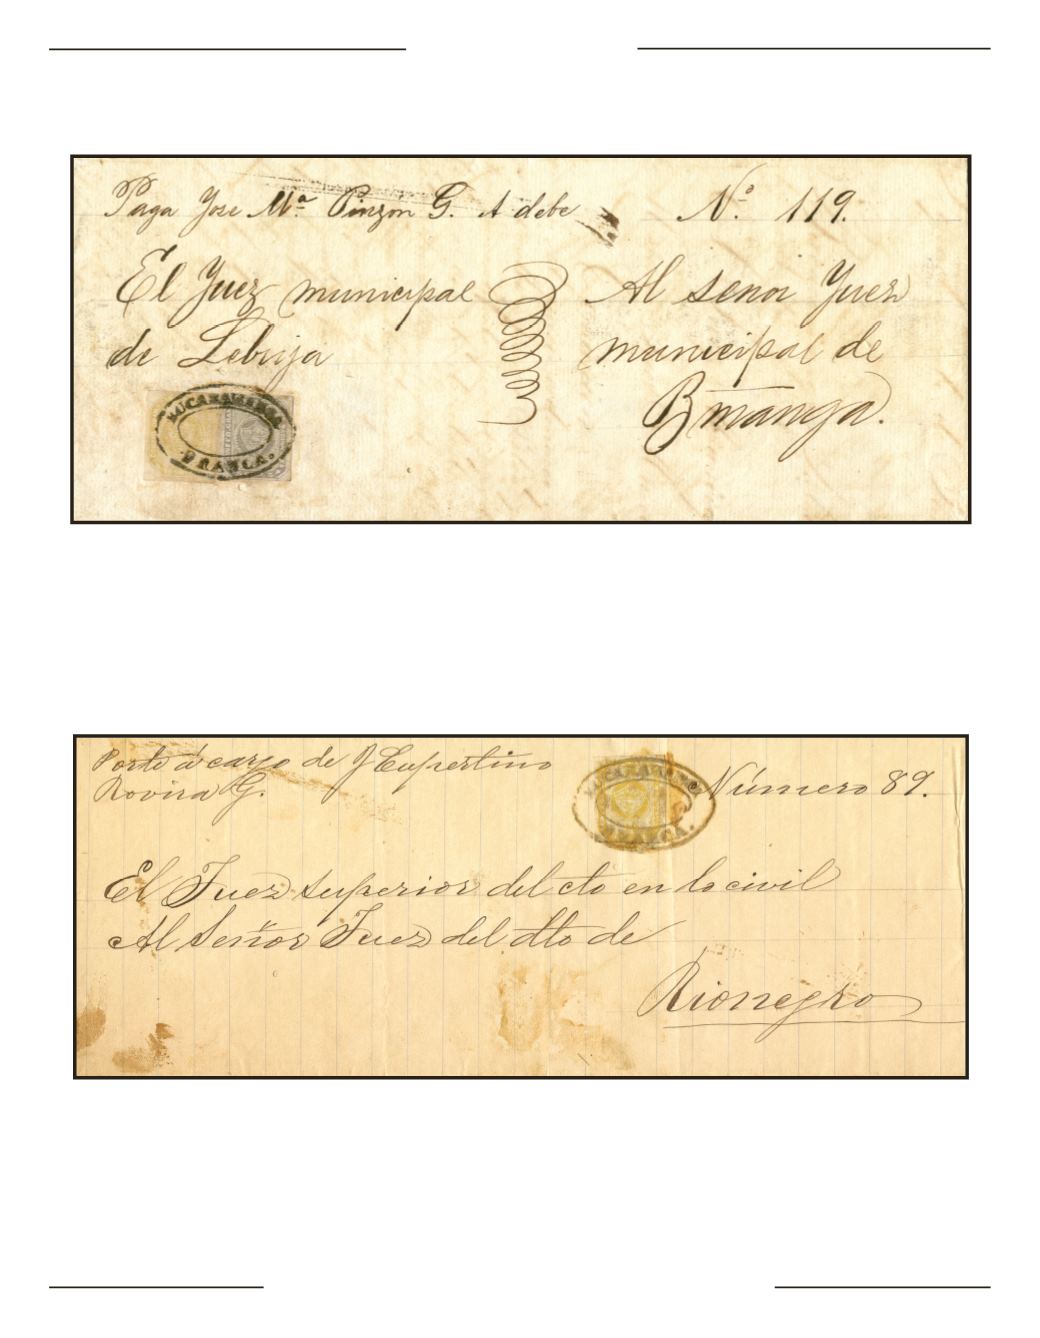 Paga Jose Mª Pinzon G. A debe Nº 119.
El Juez municipal
de Lebrija
Al señor Juez
municipal de
Bmanga.
BUCARAMANGA
FRANCA.
Porte á cargo de J Eupertino
Rovira G.
BUCARAMANGA
FRANCA.
Número 89.
El Juez superior del cto en lo civil
Al Señor Juez del dto de
Rionegro